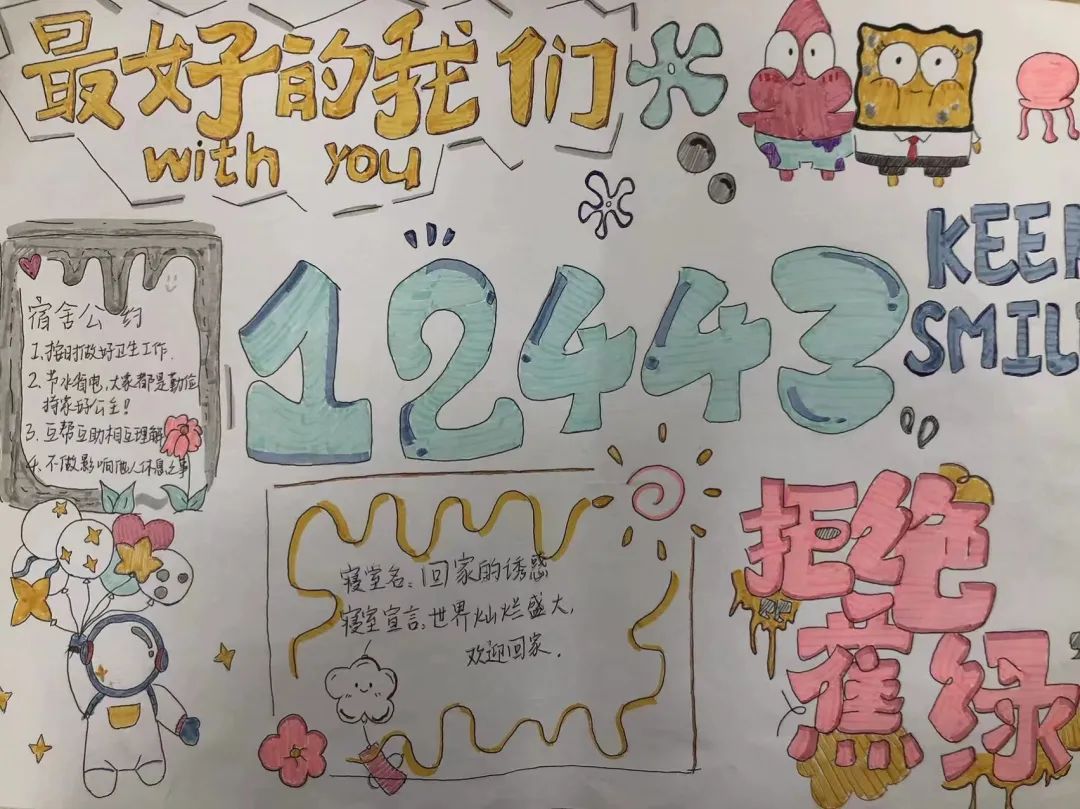 最好的我们
with you
KEEP
SMILE
12443
宿舍公约
1.按时做好卫生工作.
2.节水省电,大家都是勤俭
持家好公主!
3.互帮互助相互理解
4.不做影响他人休息之事
寝室名:回家的诱惑
寝室宣言:世界灿烂盛大,
欢迎回家.
拒绝
蕉绿